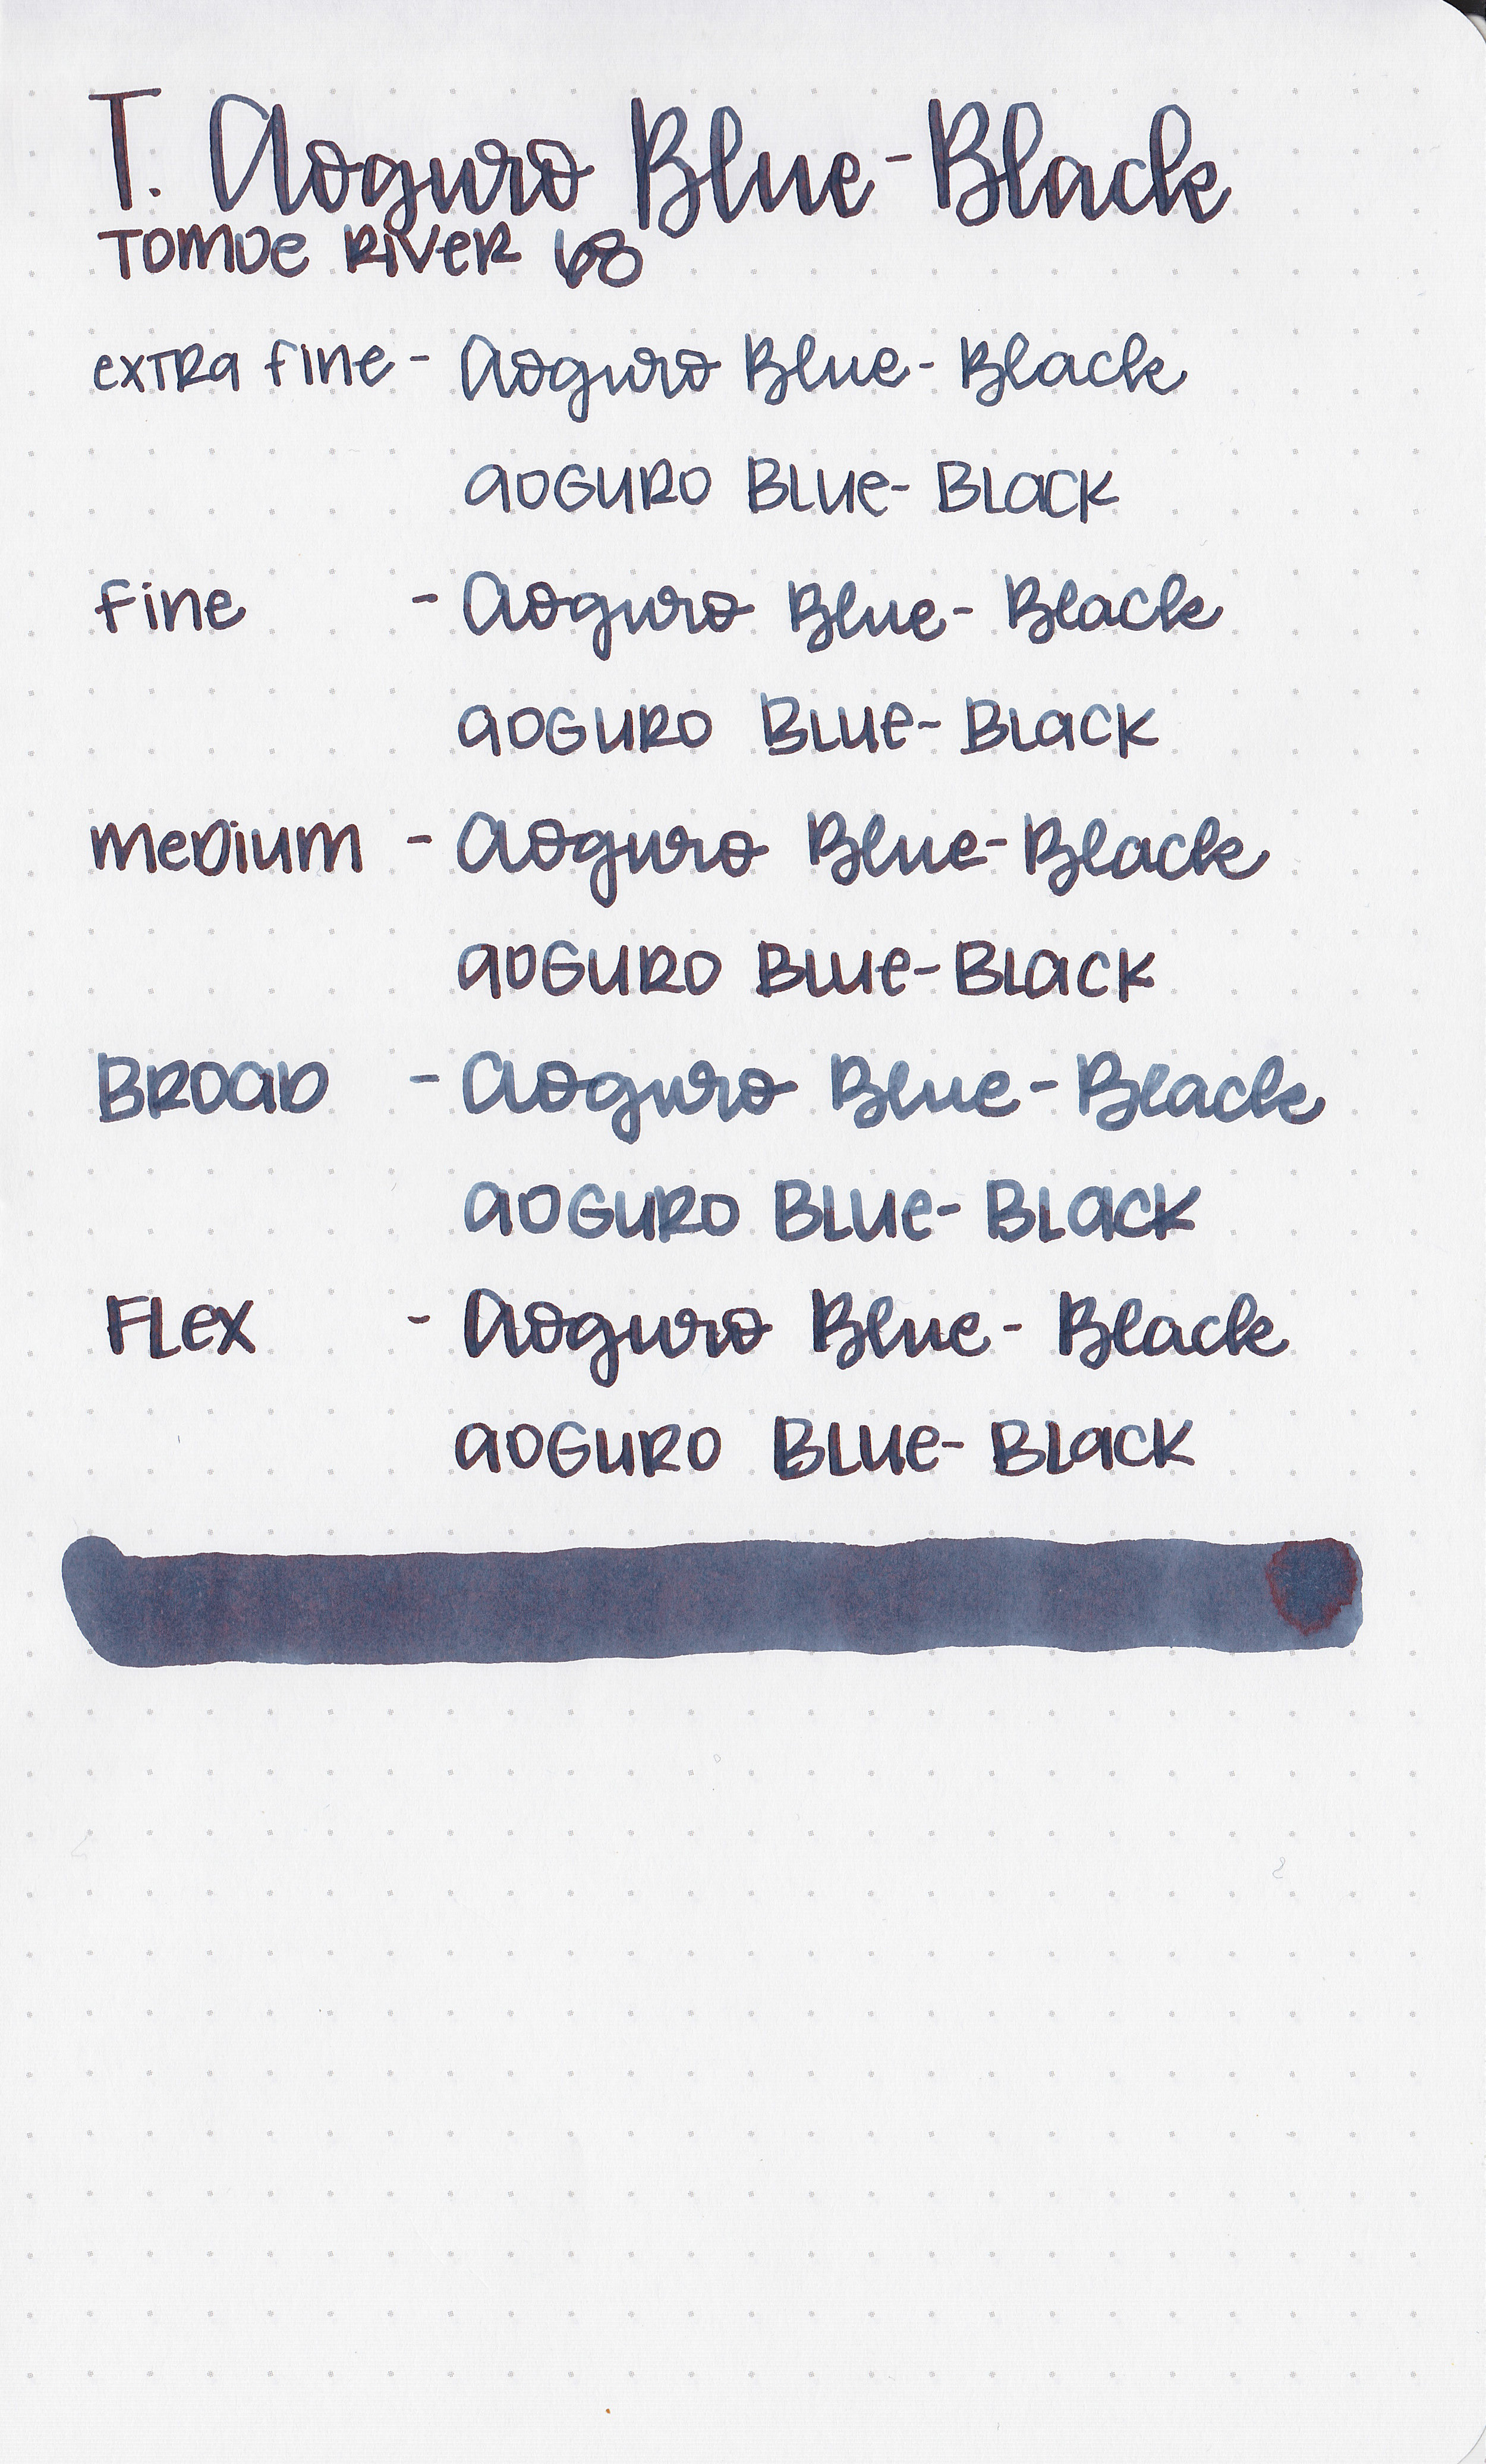 T. Aoguro Blue-Black
TOMOE RIVER 68
extra fine - Aoguro Blue-Black
aoguro Blue-Black
fine - Aoguro Blue-Black
aoguro Blue-Black
medium - Aoguro Blue-Black
aoguro Blue-Black
Broad - Aoguro Blue-Black
aoguro Blue-Black
Flex - Aoguro Blue-Black
aoguro Blue-Black